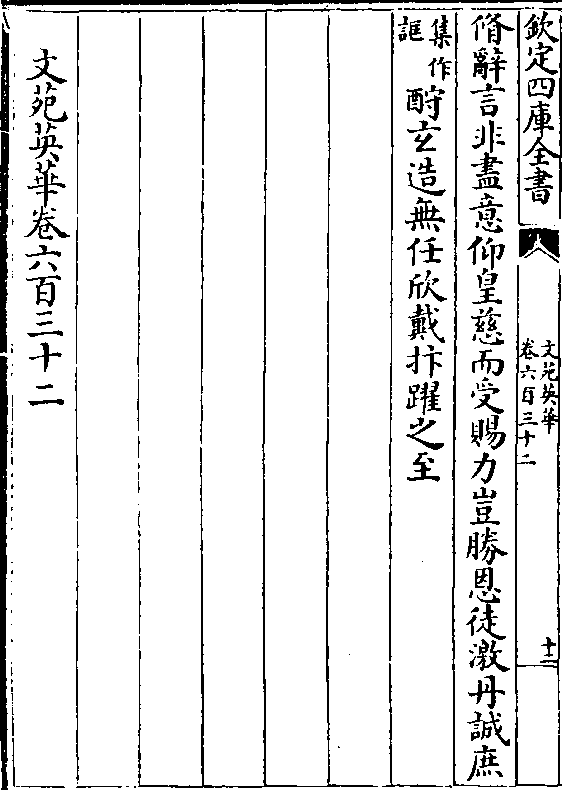 欽定四庫全書
文苑英華
卷六百三十二
十二
脩辭言非盡意仰皇慈而受賜力豈勝恩徒激丹誠庶
集作
詎
酧𤣥造無任欣戴抃躍之至
文苑英華卷六百三十二